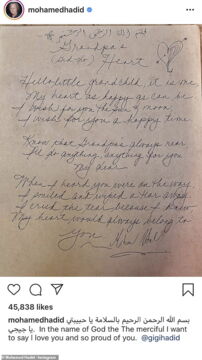 mohamedhadid
بسم الله الرحمن الرحيم
Grandpa's
Heart
Hello little grandchild, it is me
My heart as happy as can be
I wish for you the sun & moon
I wish for you a happy time.
Know that Grandpa's always near
I'll do anything, anything for you
My dear
When I heard you were on the way,
I smiled and wiped a tear away
I cried the tear because I knew
My heart would always belong to
You
45,838 likes
mohamedhadid بسم الله الرحمن الرحيم بالسلامة يا حبيبتي
يا جيجي. In the name of God the The merciful I want
to say I love you and so proud of you. @gigihadid
© Mohamed Hadid - Instagram